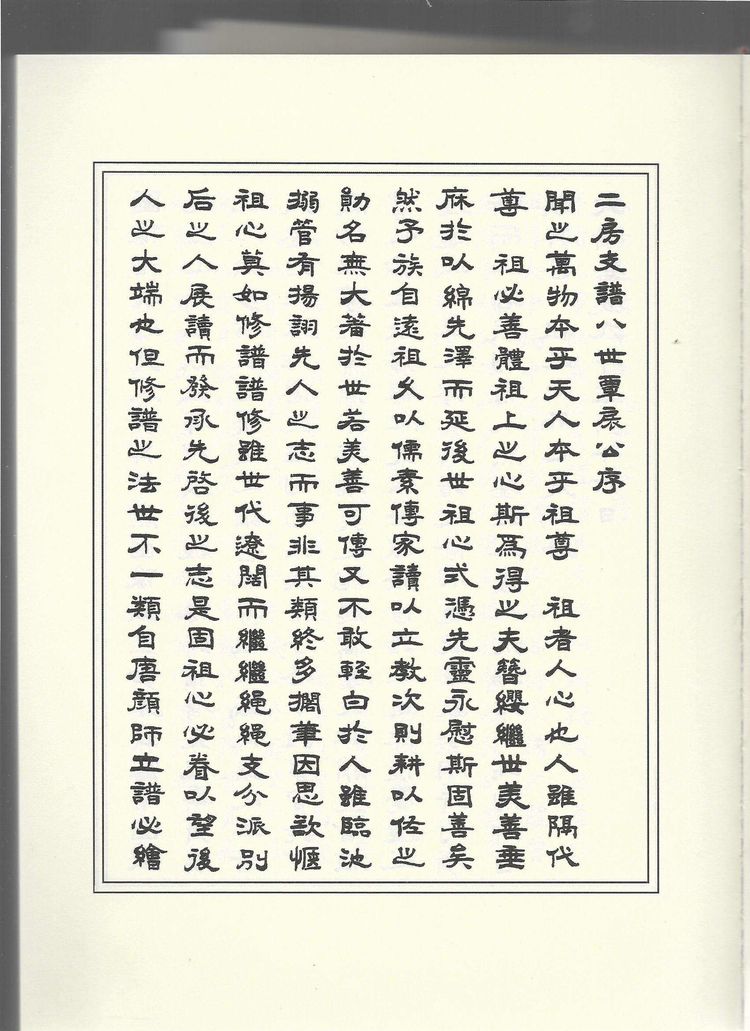 二房支譜八世覃宸公序
聞之萬物本乎天人本乎祖尊 祖者人心也人雖隔代
尊 祖必善體祖上之心斯爲得之夫簪纓繼世美善垂
庥於以綿先澤而延後世祖心式憑先靈永慰斯固善矣
然予族自遠祖久以儒素傳家讀以立教次則耕以佐之
勛名無大著於世若美善可傳又不敢輕白於人雖臨池
搦管有揚詡先人之志而事非其類終多擱筆因思欲愜
祖心莫如修譜譜修雖世代遼闊而繼繼繩繩支分派別
后之人展讀而發承先啓後之志是固祖心必眷以望後
人之大端也但修譜之法世不一類自唐顔師立譜必繪